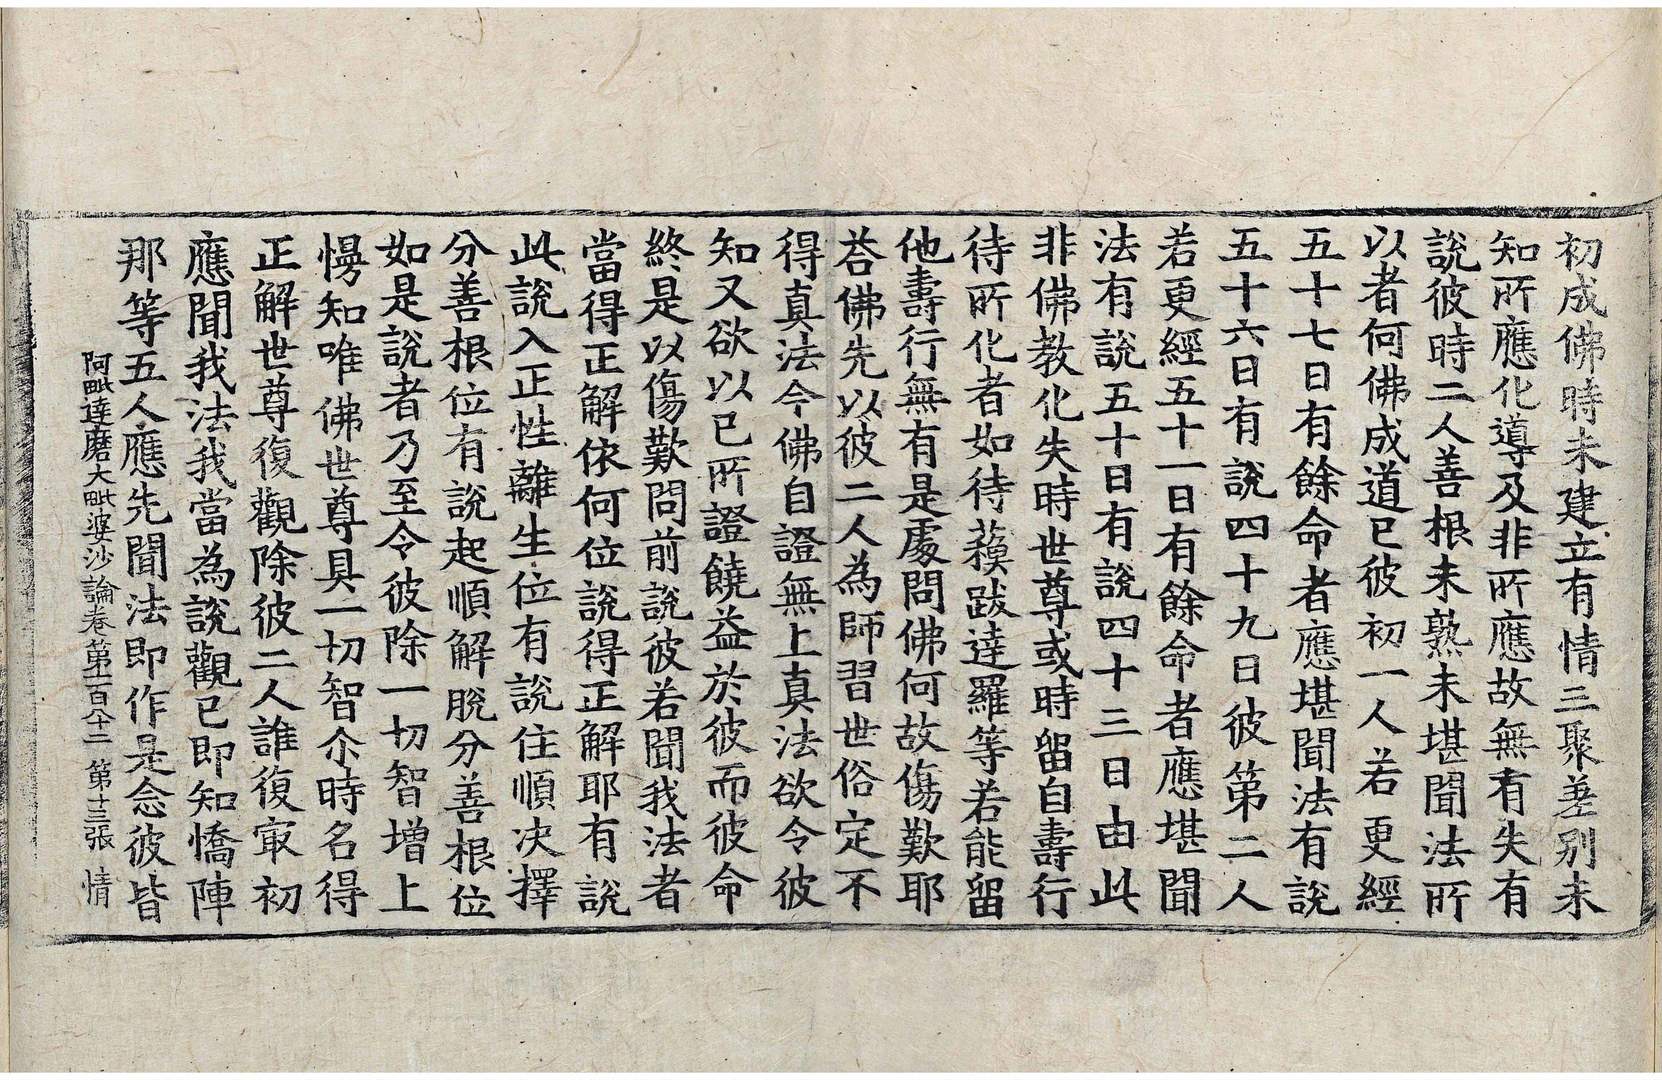 初成佛時未建立有情三聚差別未
知所應化導及非所應故無有失有
說彼時二人善根未熟未堪聞法所
以者何佛成道已彼初一人若更經
五十七日有餘命者應堪聞法有說
五十六日有說四十九日彼第二人
若更經五十一日有餘命者應堪聞
法有說五十日有說四十三日由此
非佛教化失時世尊或時留自壽行
待所化者如待蘓跋達羅等若能留
他壽行無有是處問佛何故傷歎耶
荅佛先以彼二人為師習世俗定不
得真法今佛自證無上真法欲令彼
知又欲以已所證饒益於彼而彼命
終是以傷歎問前說彼若聞我法者
當得正解依何位說得正解耶有說
此說入正性離生位有說住順決擇
分善根位有說起順解脫分善根位
如是說者乃至令彼除一切智增上
慢知唯佛世尊具一切智尒時名得
正解世尊復觀除彼二人誰復㝡初
應聞我法我當為說觀已即知憍陣
那等五人應先聞法即作是念彼皆
阿毗達磨大毗婆沙論卷第一百八十二 第十三張 情